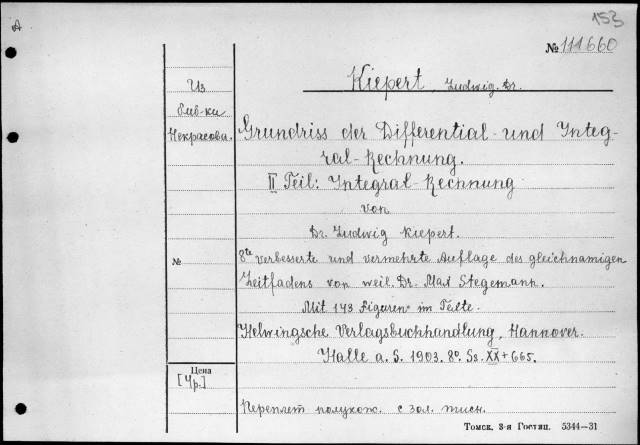 A
153
№ 111660
Kiepert, Ludwig. Dr.
Из
биб-ки
Некрасова.
Grundriss der Differential- und Integ-
ral-Rechnung.
II Teil: Integral-Rechnung
von
Dr. Ludwig Kiepert.
№
8te verbesserte und vermehrte Auflage des gleichnamigen
Leitfadens von weil. Dr. Max Stegemann.
Mit 143 Figuren im Texte.
Helwingsche Verlagsbuchhandlung, Hannover.
Halle a. S. 1903. 8o. Ss. XX + 665.
Цена
[4р.]
Переплет полукож. с зол. тисн.
Томск, 3-я Гостип. 5344—31